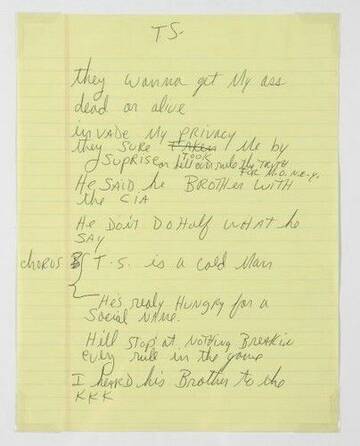 TS.
they wanna get My ass
dead or alive
inVADE My PRIVACY
they SURE TAKen TOOK Me by
SUPRISE the TRUTH
FOR M.O.N.E.Y.
He SAID he BROTHeR WITH
the CIA
He Don't DO Half WHAT he
SAY
chorus T.S. is a cold MAN
Hes realy HUNGRY for a
Social NAMe.
Hill Stop at NOTHING BREAKIN
every rule in the game
I heared his Brother to the
KKK